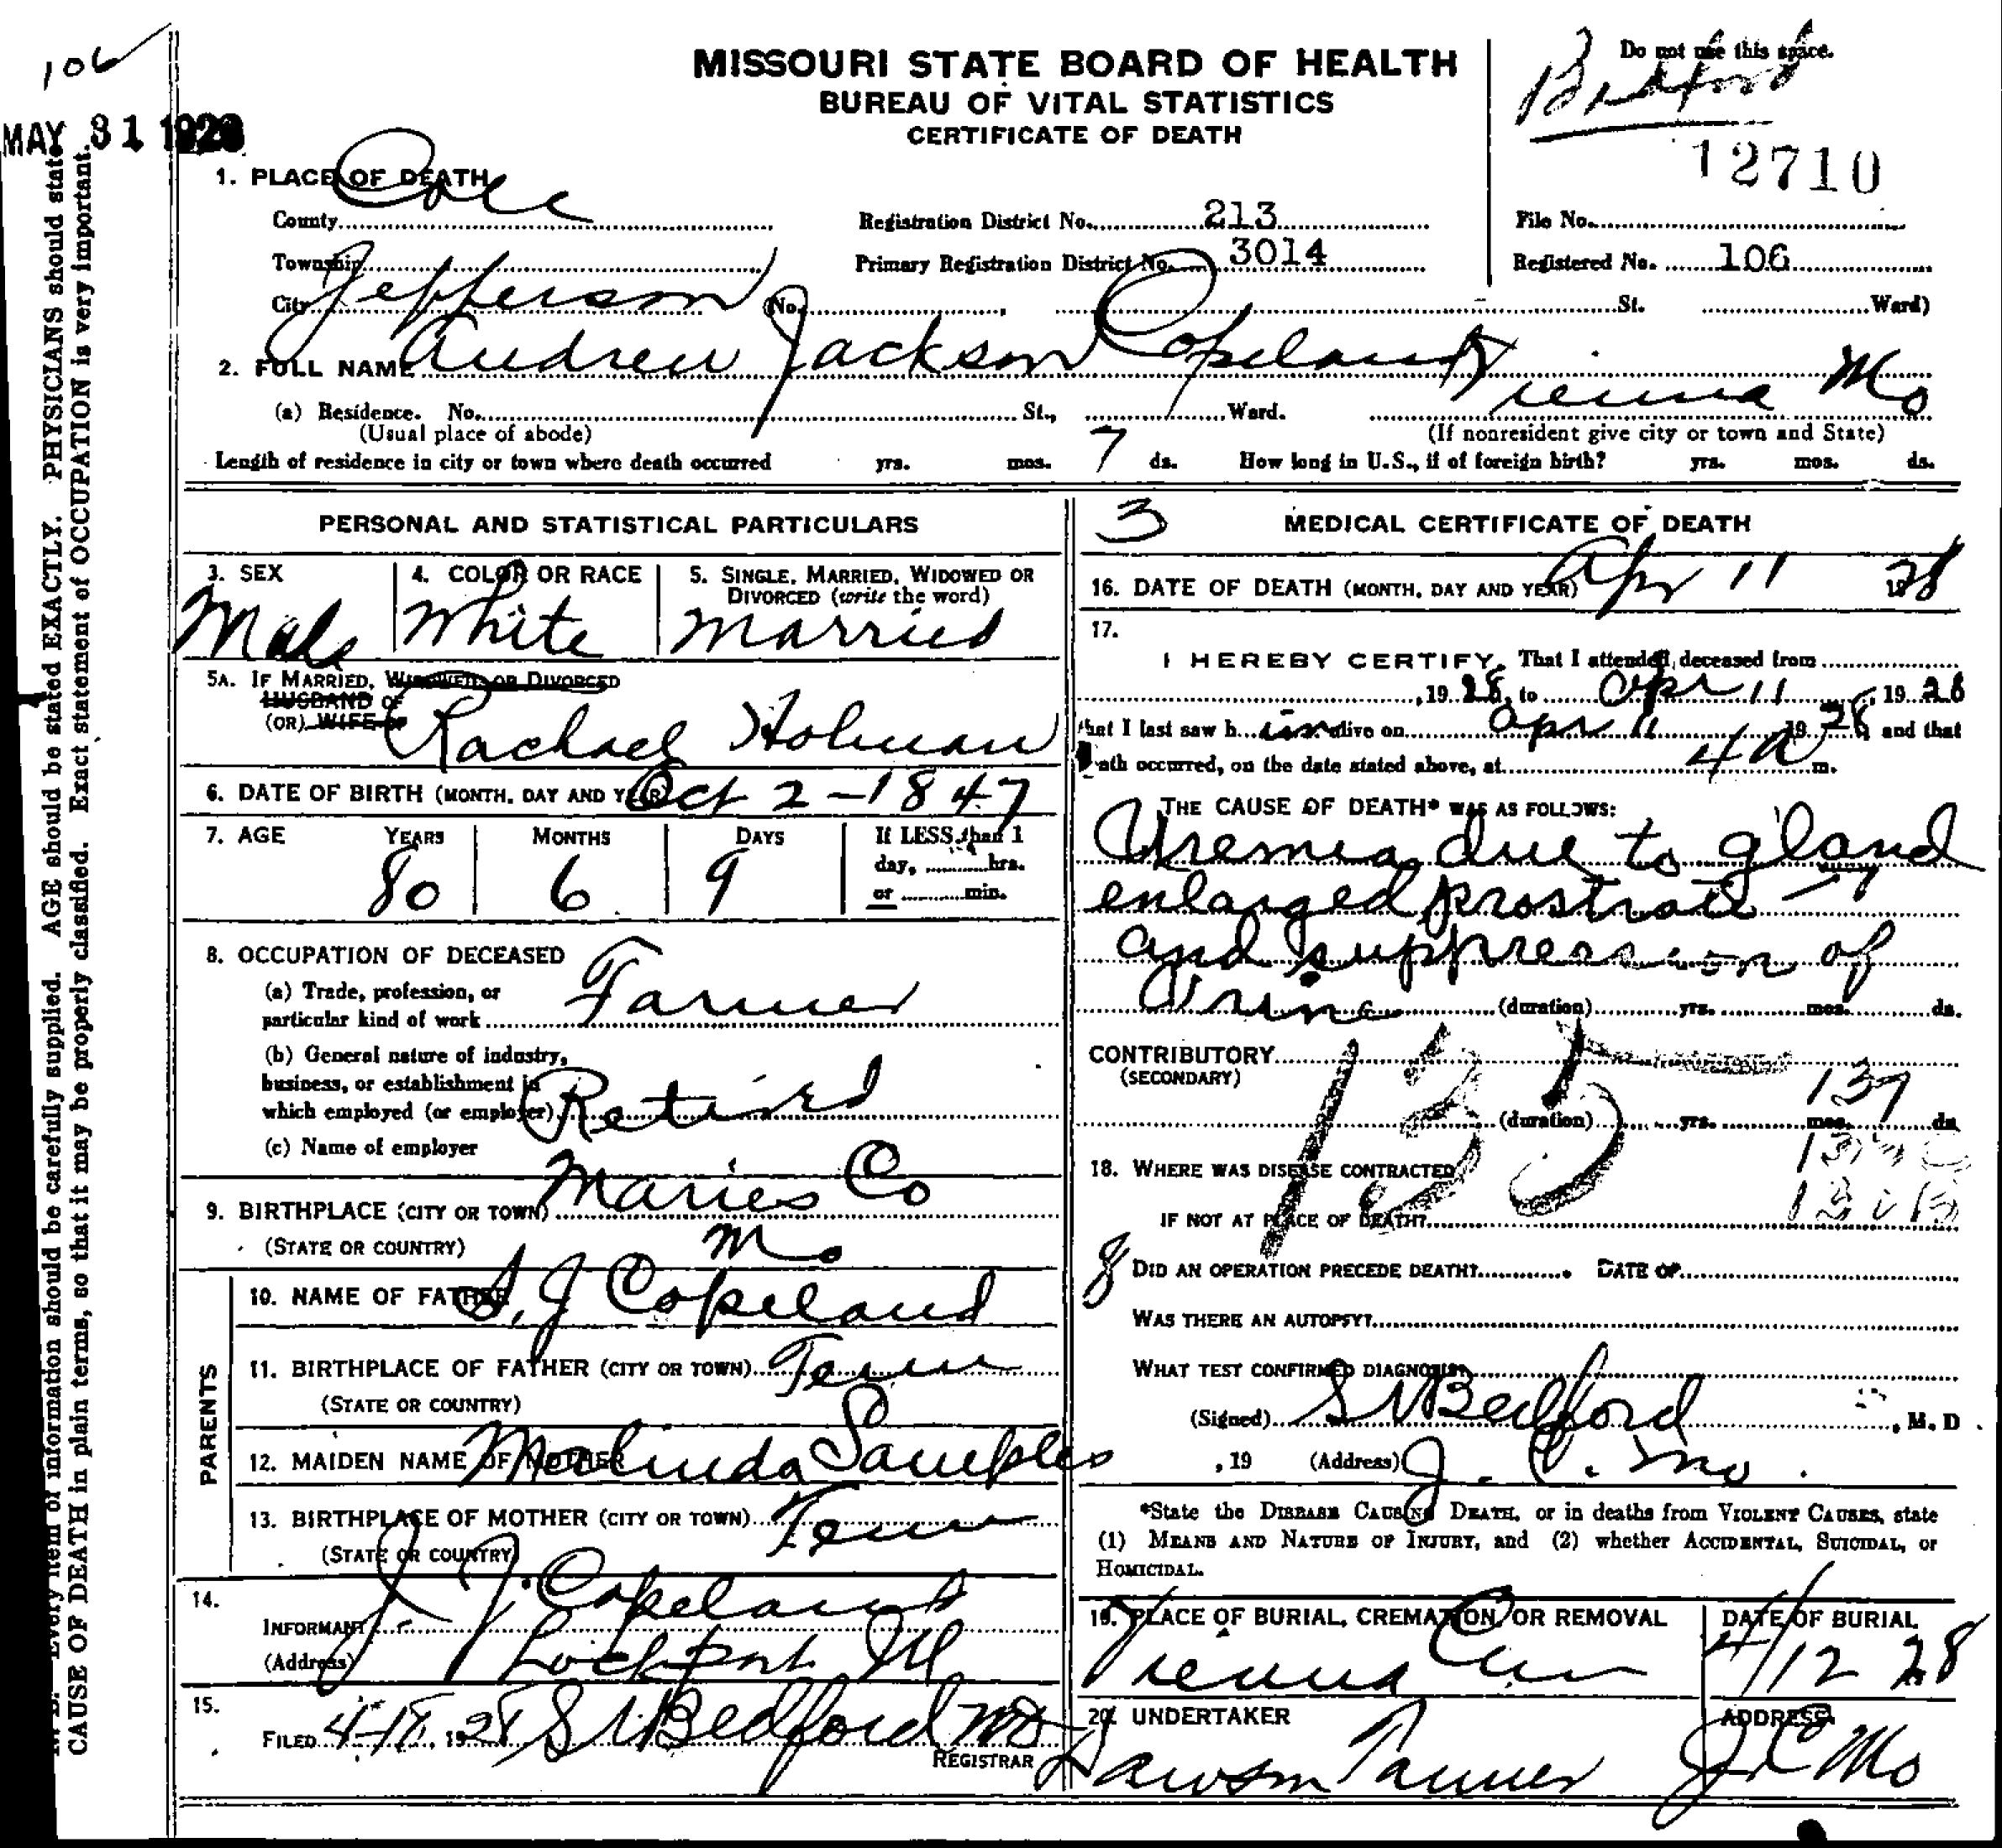 106
MAY 31 1928
MISSOURI STATE BOARD OF HEALTH
BUREAU OF VITAL STATISTICS
CERTIFICATE OF DEATH
Do not use this space.
Bedford
12710
1. PLACE OF DEATH
County Cole
Registration District No. 213
File No.
Township
Primary Registration District No. 3014
Registered No. 106
City Jefferson (No. , St. Ward)
2. FULL NAME Andrew Jackson Copeland
(a) Residence. No. St., Ward. Vienna Mo
(Usual place of abode) (If nonresident give city or town and State)
Length of residence in city or town where death occurred yrs. mos. 7 ds. How long in U.S., if of foreign birth? yrs. mos. ds.
PERSONAL AND STATISTICAL PARTICULARS
3. SEX
Male
4. COLOR OR RACE
White
5. SINGLE, MARRIED, WIDOWED OR
DIVORCED (write the word)
Married
5A. IF MARRIED, WIDOWED OR DIVORCED
HUSBAND OF
(OR) WIFE OF Rachael Holman
6. DATE OF BIRTH (MONTH, DAY AND YEAR) Oct 2-1847
7. AGE YEARS MONTHS DAYS If LESS than 1
day, hrs.
or min.
80 6 9
8. OCCUPATION OF DECEASED
(a) Trade, profession, or
particular kind of work Farmer
(b) General nature of industry,
business, or establishment in
which employed (or employer) Retired
(c) Name of employer
9. BIRTHPLACE (CITY OR TOWN) Maries Co
(STATE OR COUNTRY) Mo
PARENTS
10. NAME OF FATHER J Copeland
11. BIRTHPLACE OF FATHER (CITY OR TOWN) Tenn
(STATE OR COUNTRY)
12. MAIDEN NAME OF MOTHER Malinda Samples
13. BIRTHPLACE OF MOTHER (CITY OR TOWN) Tenn
(STATE OR COUNTRY)
14.
INFORMANT J. J. Copeland
(Address) Lockport Ill
15.
FILED 4-18, 1928 S V Bedford MD
REGISTRAR
3 MEDICAL CERTIFICATE OF DEATH
16. DATE OF DEATH (MONTH, DAY AND YEAR) Apr 11 1928
17.
I HEREBY CERTIFY, That I attended deceased from
, 1928, to Apr 11, 1928
that I last saw him alive on Apr 11 1928, and that
death occurred, on the date stated above, at 4 a m.
THE CAUSE OF DEATH* WAS AS FOLLOWS:
Uremia due to gland
enlarged prostrate
and suppression of
Urine (duration) yrs. mos. ds.
CONTRIBUTORY
(SECONDARY)
135
137
(duration) yrs. mos. ds.
18. WHERE WAS DISEASE CONTRACTED
IF NOT AT PLACE OF DEATH?
8 DID AN OPERATION PRECEDE DEATH? DATE OF
WAS THERE AN AUTOPSY?
WHAT TEST CONFIRMED DIAGNOSIS?
(Signed) S V Bedford, M. D.
, 19 (Address) J. C. Mo.
*State the DISEASE CAUSING DEATH, or in deaths from VIOLENT CAUSES, state
(1) MEANS AND NATURE OF INJURY, and (2) whether ACCIDENTAL, SUICIDAL, or
HOMICIDAL.
19. PLACE OF BURIAL, CREMATION, OR REMOVAL
Vienna Cem
DATE OF BURIAL
4/12 28
20. UNDERTAKER
Dawson Tanner
ADDRESS
J C Mo
Every item of information should be carefully supplied. AGE should be stated EXACTLY. PHYSICIANS should state
CAUSE OF DEATH in plain terms, so that it may be properly classified. Exact statement of OCCUPATION is very important.